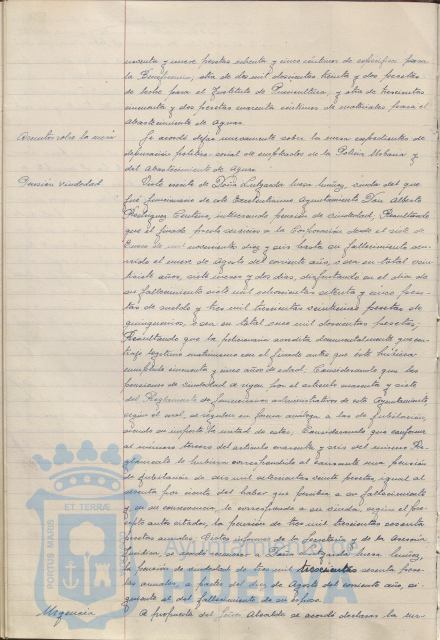 noventa y nueve pesetas ochenta y cinco céntimos de específicos para
la Beneficencia, otra de dos mil doscientas treinta y dos pesetas
de leche para el Instituto de Puericultura, y otra de trescientas
cincuenta y dos pesetas cuarenta céntimos de materiales para el
Abastecimiento de Aguas.
Asuntos sobre la mesa
Se acordó dejar nuevamente sobre la mesa expedientes de
depuración político-social de empleados de la Policía Urbana y
del Abastecimiento de Aguas.
Pensión viudedad
Visto escrito de Doña Luzgarda Mesa Núñez, viuda del que
fué funcionario de este Excelentísimo Ayuntamiento Don Alberto
Rodríguez Centeno, interesando pensión de viudedad; Resultando
que el finado prestó servicios a la Corporación desde el siete de
Enero de mil novecientos diez y seis hasta su fallecimiento ocu-
rrido el nueve de Agosto del corriente año, o sea en total vein-
tisiete años, siete meses y dos días, disfrutando en el día de
su fallecimiento siete mil ochocientas setenta y cinco pese-
tas de sueldo y tres mil trescientas veinticinco pesetas de
quinquenios, o sea en total once mil doscientas pesetas;
Resultando que la peticionaria acredita documentalmente que con-
trajo legítimo matrimonio con el finado antes que éste hubiera
cumplido cincuenta y cinco años de edad. Considerando que las
pensiones de viudedad se rigen por el artículo noventa y siete
del Reglamento de funcionarios administrativos de este Ayuntamiento,
según el cual, se regulan en forma análoga a las de jubilación,
siendo su importe la mitad de éstas. Considerando que conforme
al número tercero del artículo noventa y seis del mismo Re-
glamento le hubiera correspondido al causante una pensión
de jubilación de seis mil setecientas veinte pesetas, igual al
sesenta por ciento del haber que percibía a su fallecimiento
y, en su consecuencia, le corresponde a su viuda, según el pre-
cepto antes citado, la pensión de tres mil trescientas sesenta
pesetas anuales. Vistos informes de la Secretaría y de la Asesoría
Jurídica, se acordó reconocer a Doña Luzgarda Mesa Núñez,
la pensión de viudedad de tres mil trescientas sesenta pese-
tas anuales, a partir del diez de Agosto del corriente año, si-
guiente al del fallecimiento de su esposo.
Urgencia
A propuesta del Señor Alcalde se acordó declarar la ur-
PORTUS MARIS
ET TERRAE